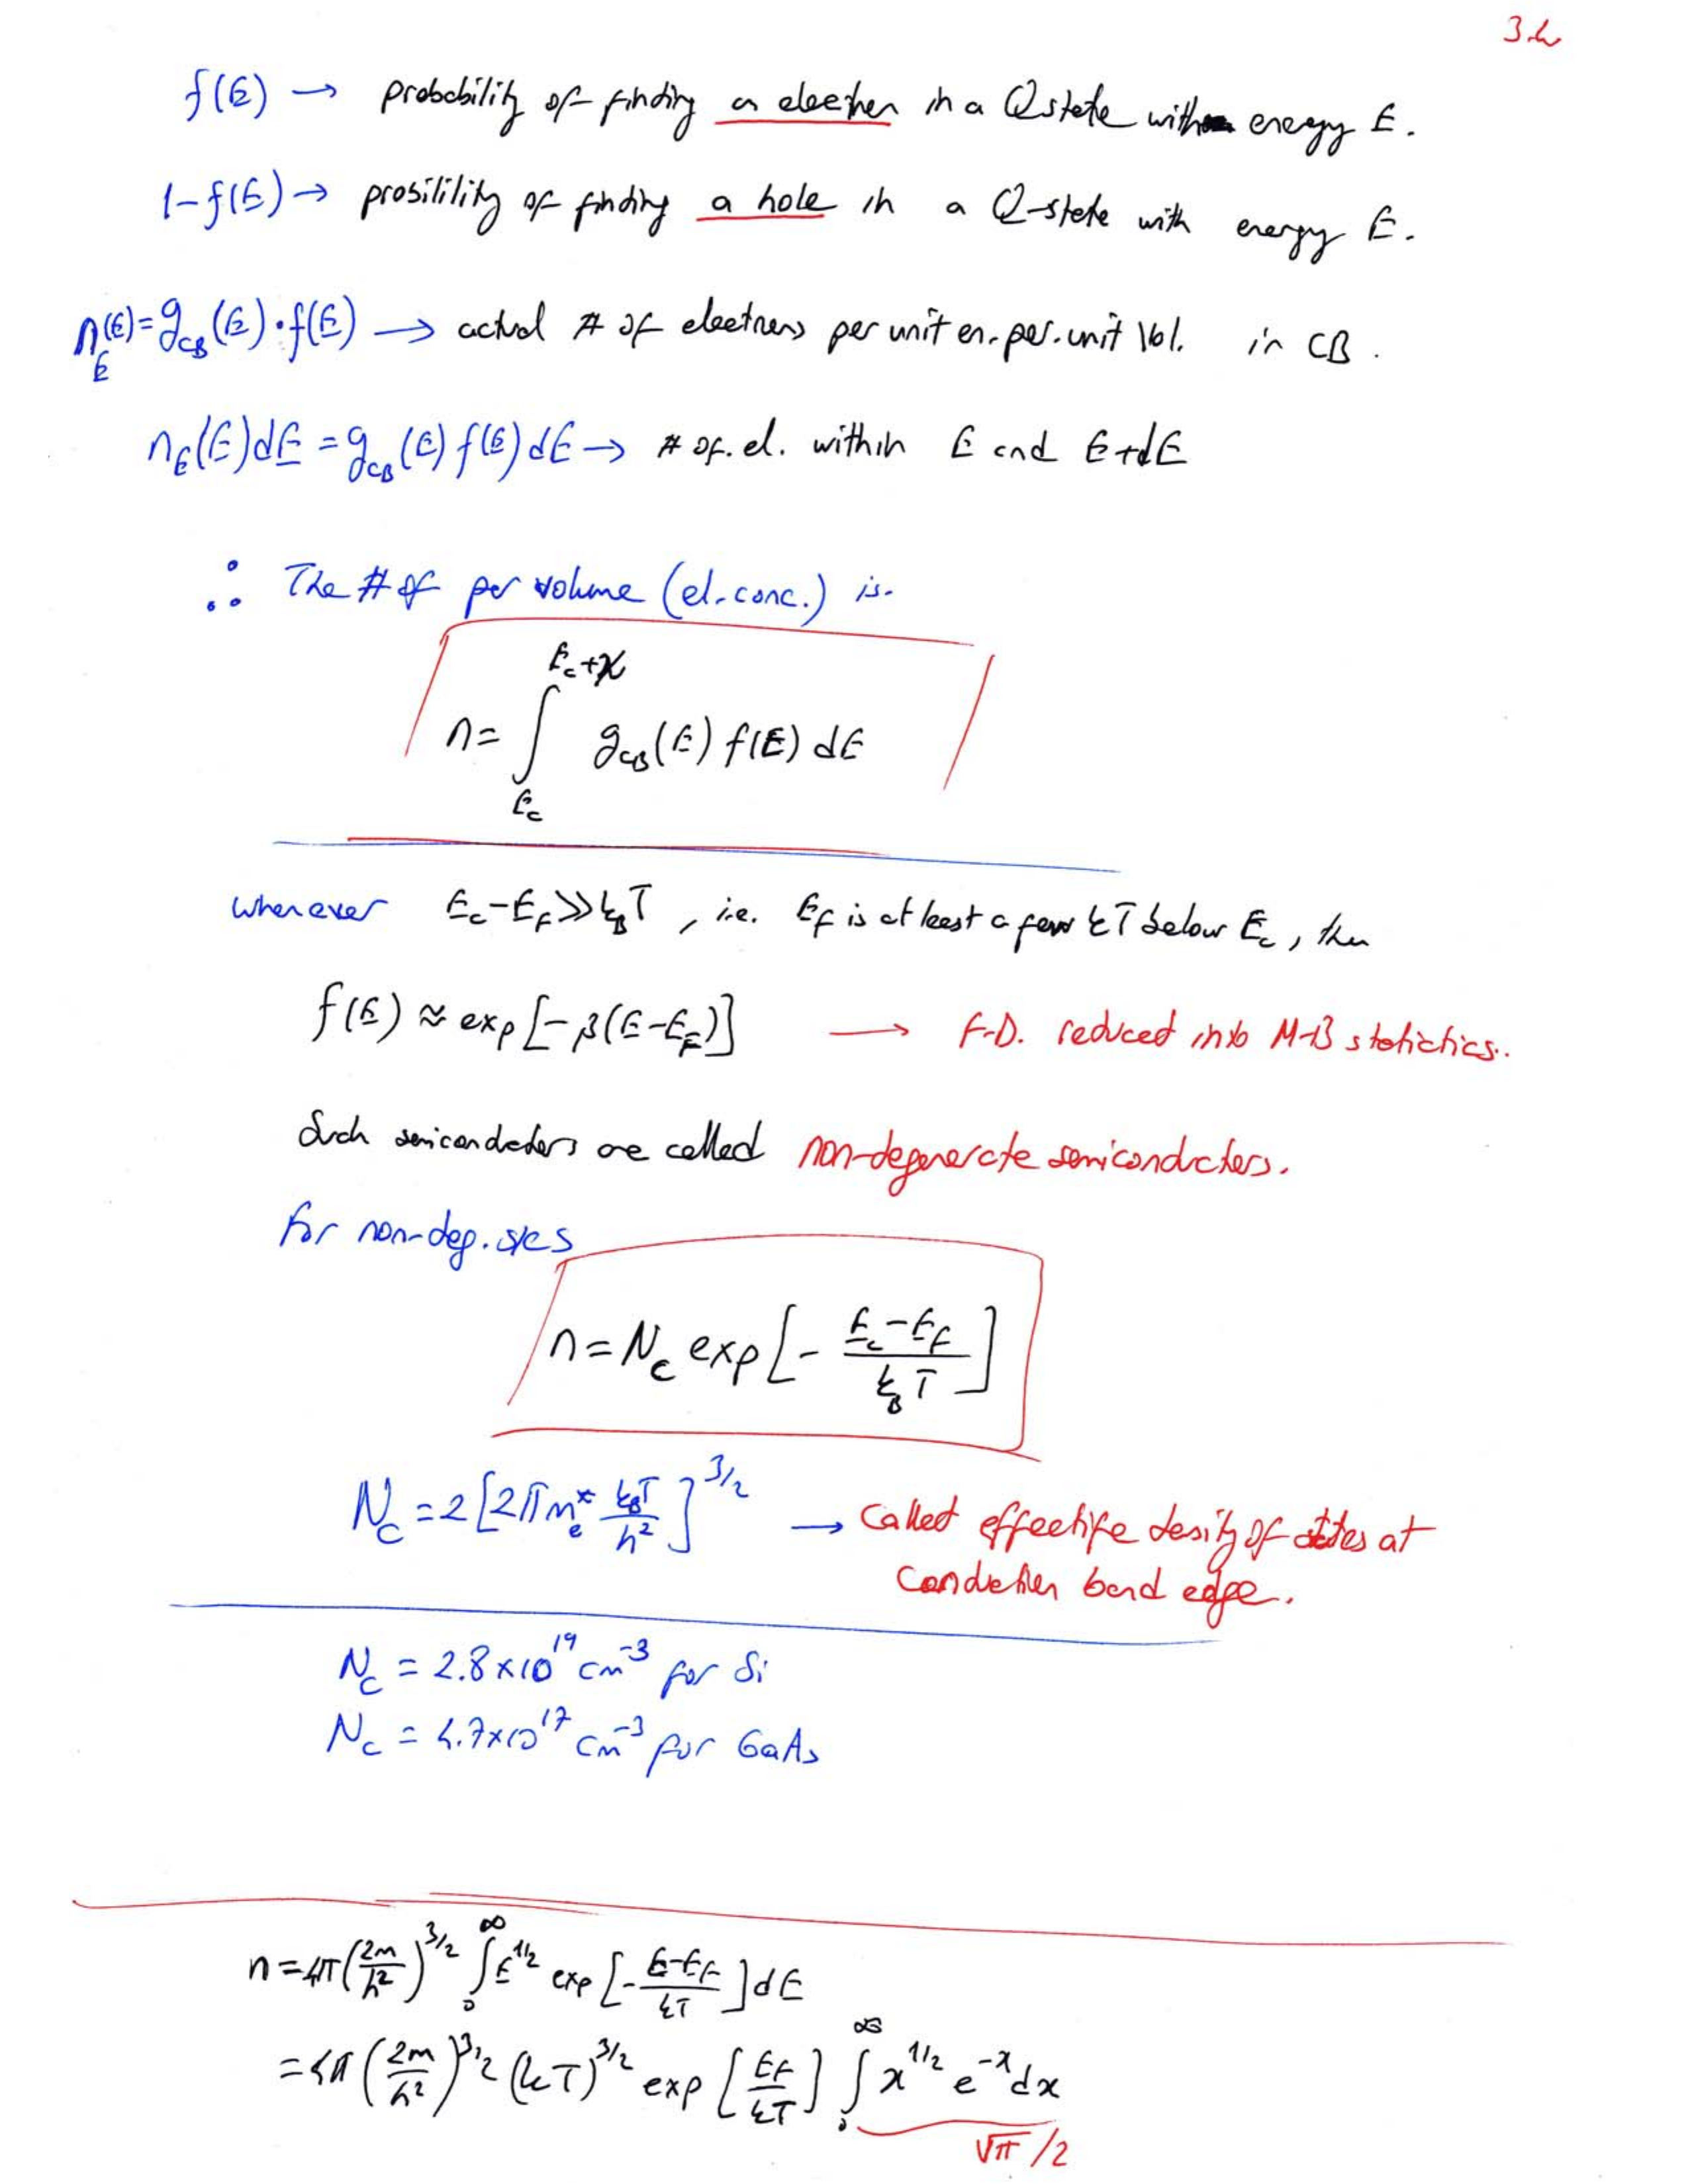 3.4
f(E) → probability of finding an electron in a Q state with energy E.
1-f(E) → prosilility of finding a hole in a Q-state with energy E.
n_E(E) = g_CB(E)·f(E) → actual # of electrons per unit en. per. unit Vol. in CB.
n_E(E)dE = g_CB(E) f(E) dE → # of. el. within E and E+dE
∴ The # of per volume (el. conc.) is.
n = ∫_{E_c}^{E_c+χ} g_CB(E) f(E) dE
whenever E_c - E_F >> k_B T, i.e. E_F is at least a few kT below E_c, then
f(E) ≈ exp[-β(E-E_F)] → F-D. reduced into M-B statistics..
Such semiconductors are called non-degenerate semiconductors.
for non-deg. s/cs
n = N_c exp[- (E_c - E_F)/(k_B T)]
N_c = 2[2π m_e* k_B T/h²]^{3/2} → called effective desity of states at
conduction band edge.
N_c = 2.8×10^19 cm^-3 for Si
N_c = 4.7×10^17 cm^-3 for GaAs
n = 4π(2m/h²)^{3/2} ∫_0^∞ E^{1/2} exp[- (E-E_F)/(kT)] dE
= 4π(2m/h²)^{3/2} (kT)^{3/2} exp[E_F/(kT)] ∫_0^∞ x^{1/2} e^{-x} dx
√π/2